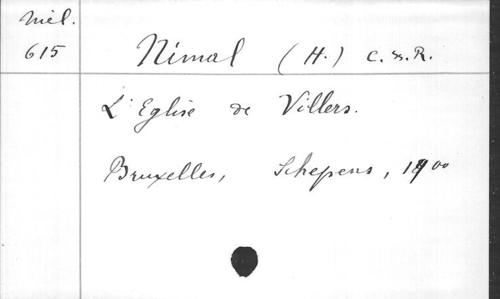 Mél.
615
Nimal (H.) C.ss.R.
L'Eglise de Villers.
Bruxelles, Schepens, 1900